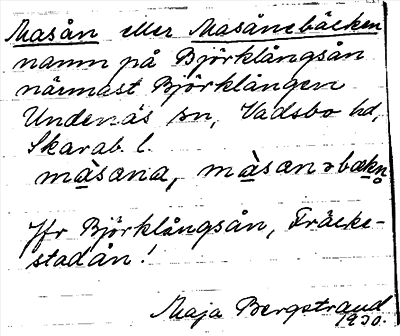 Masån eller Masånebäcken
namn på Björklångsån
närmast Björklången
Undenäs sn, Vadsbo hd,
Skarab. l.
màsana, màsanəbækn̥
Jfr Björklångsån, Fräcke-
stadån!
Maja Bergstrand
1930.